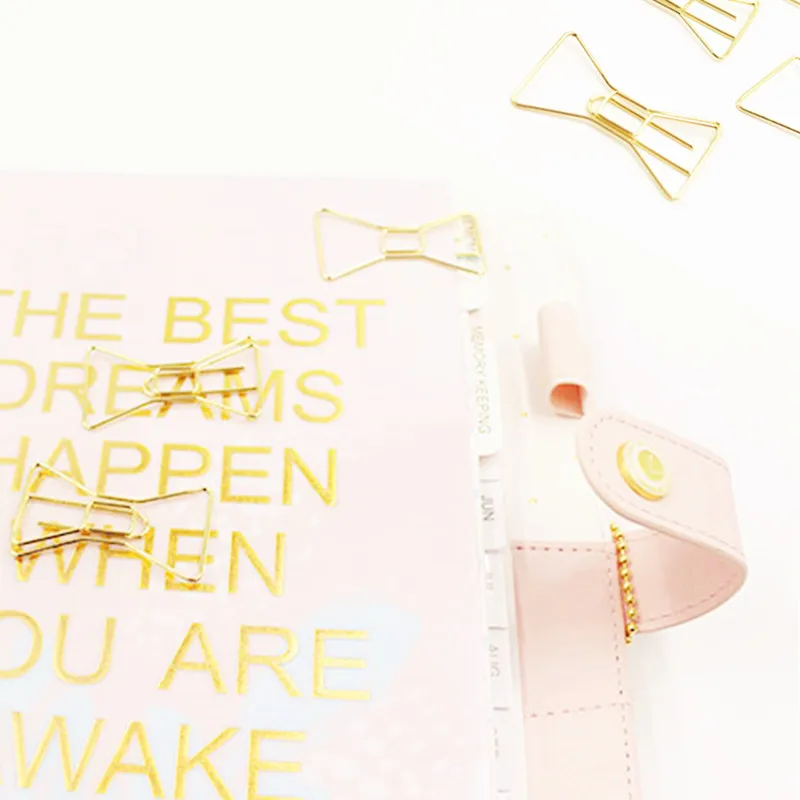 THE BEST
DREAMS
HAPPEN
WHEN
YOU ARE
AWAKE
MEMORY KEEPING
JUN
AUG